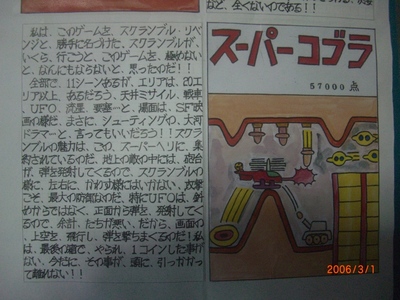 など、全くないのである!!
私は、このゲームを、スクランブル・リベ
ンジと、勝手に名づけた、スクランブルが、
いくら、行こうと、このゲームを、極めない
と、なんにもならないと、思ったのだ!!
全部で、11シーンあるが、エリアは、20エ
リア以上、あるだろう。天井ミサイル、戦車
、UFO、流星、要塞…と、場面は、SF映
画の様だ。まさに、シューティングの、大河
ドラマーと、言ってもいいだろう!!スクラン
ブルの魅力は、この、スーパーヘリに、集
約されているのだ。地上の敵の中には、砲台
が、弾を発射してくるので、スクランブルの
様に、左右に、かわす様にはいかない。攻撃
こそ、最大の防御なのだ。特にUFOは、斜
めからではなく、正面から弾を、発射してく
るので、余計、たちが悪い。だから、画面の
、上空を、飛行し、弾を撃ちまくるのだ!私
は、最後の富で、やられ、1コインした事が
ない。今だに、その事が、頭に、引っかかっ
て離れない!!
スーパーコブラ
57000 点
2006/3/1